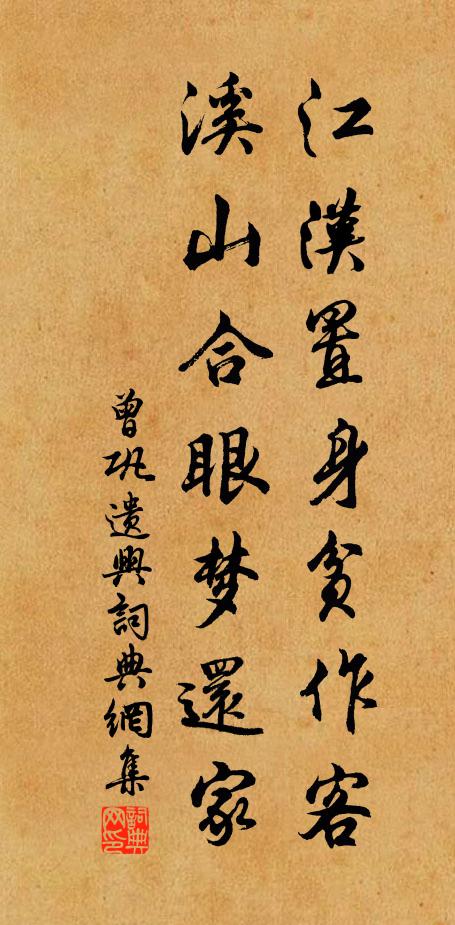 江漢置身貧作客
溪山合眼梦還家
曾巩遺興詞典網集
詞典网印